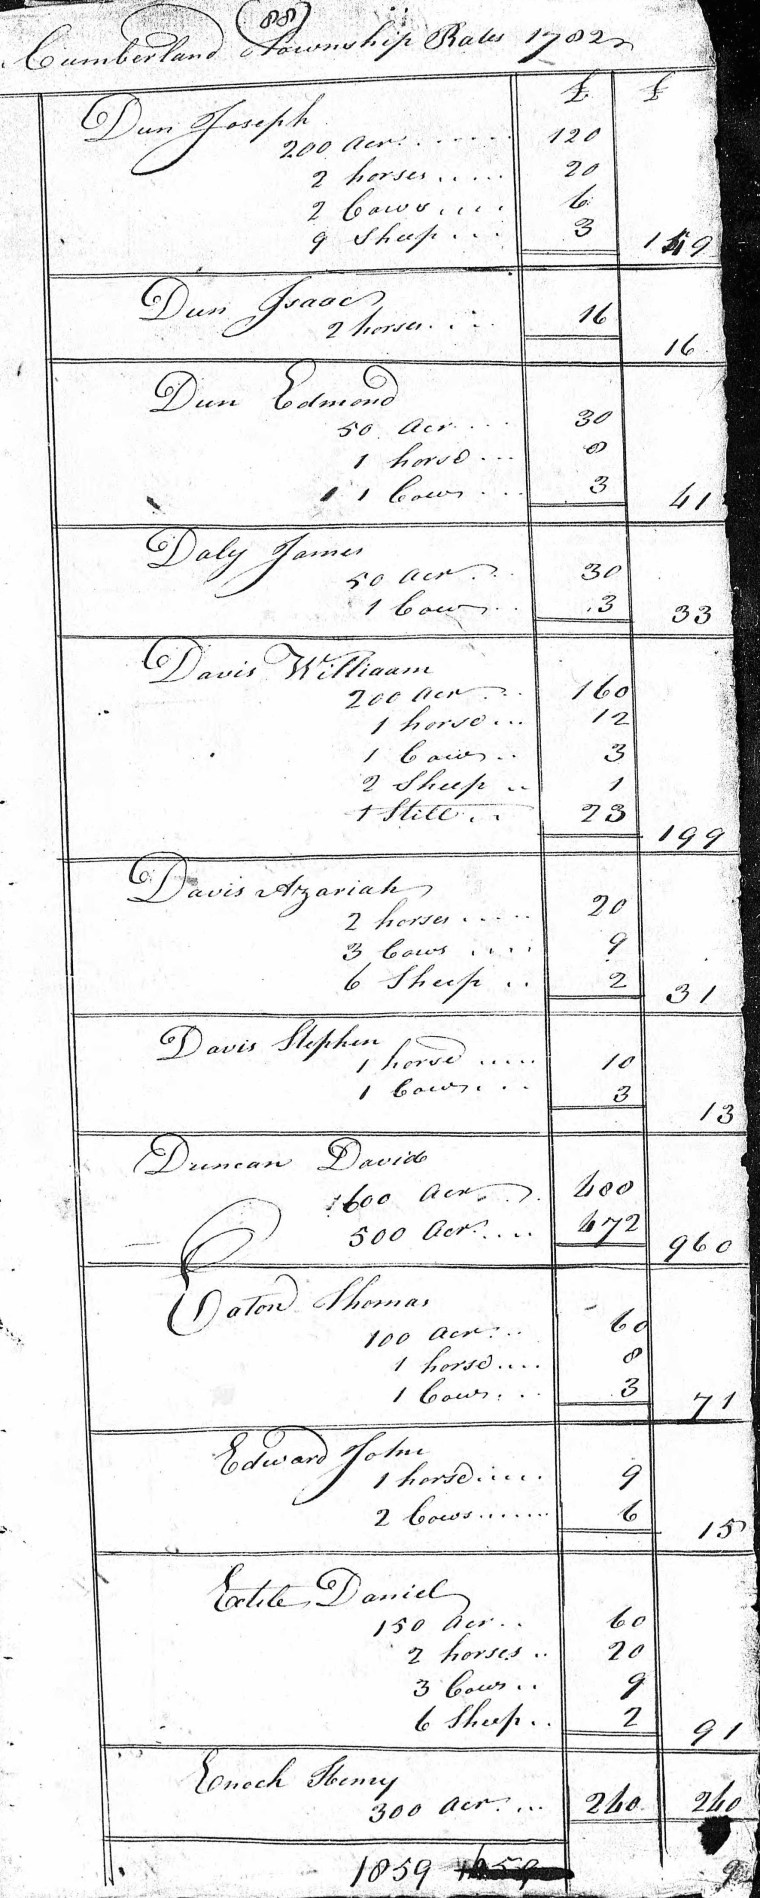 (88)
Cumberland Township Rates 1782
£ £
Dun Joseph
200 Acr. 120
2 horses 20
2 Cows 6
9 Sheep 3 149
Dun Isaac
2 horses 16
16
Dun Edmond
50 Acr 30
1 horse 8
1 Cows 3 41
Daly James
50 Acr 30
1 Cow 3 33
Davis Williaam
200 Acr 160
1 horse 12
1 Cows 3
2 Sheep 1
1 Still 23
199
Davis Azariah
2 horses 20
3 Cows 9
6 Sheep 2 31
Davis Stephen
1 horse 10
1 Cows 3
13
Duncan David
600 Acr. 480
500 Acr. 472 960
Eaton Thomas
100 Acr. 60
1 horse 8
1 Cows 3 71
Edward John
1 horse 9
2 Cows 6 15
Daniel
150 Acr 60
2 horses 20
3 Cows 9
6 Sheep 2 91
Enoch Henry
300 Acr. 240 240
1859